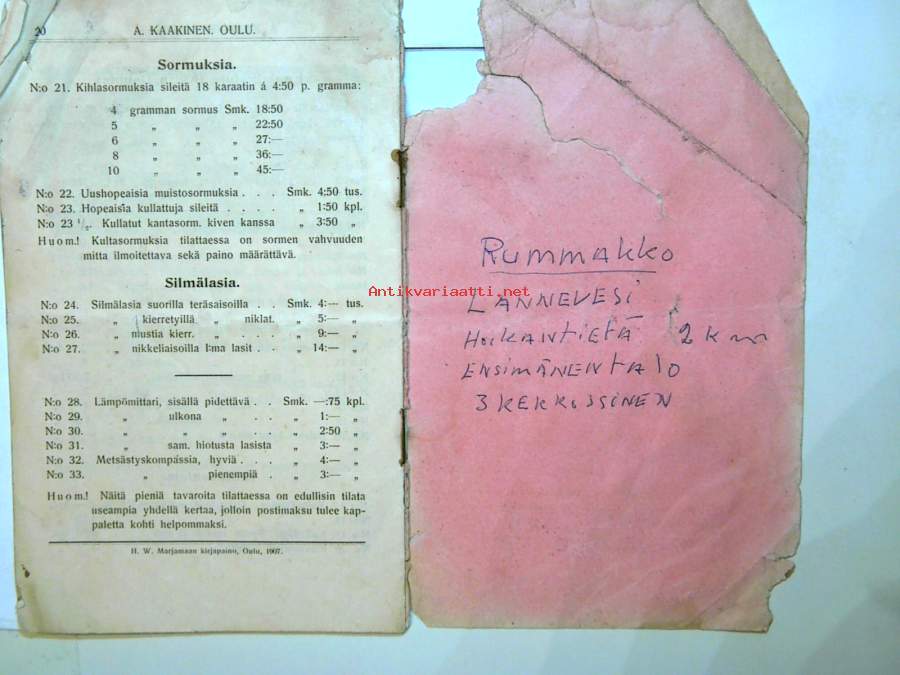 20 A. KAAKINEN. OULU.
Sormuksia.
N:o 21. Kihlasormuksia sileitä 18 karaatin á 4:50 p. gramma:
4 gramman sormus Smk. 18:50
5 „ „ „ 22:50
6 „ „ „ 27:—
8 „ „ „ 36:—
10 „ „ „ 45:—
N:o 22. Uushopeaisia muistosormuksia . . . Smk. 4:50 tus.
N:o 23. Hopeaisia kullattuja sileitä . . . . „ 1:50 kpl.
N:o 23 ½. Kullatut kantasorm. kiven kanssa „ 3:50 „
Huom.! Kultasormuksia tilattaessa on sormen vahvuuden
mitta ilmoitettava sekä paino määrättävä.
Silmälasia.
N:o 24. Silmälasia suorilla teräsaisoilla . . Smk. 4:— tus.
N:o 25. „ kierretyillä „ niklat. „ 5:— „
N:o 26. „ niustia kierr. „ . . „ 9:— „
N:o 27. „ nikkeliaisoilla I:ma lasit . . „ 14:— „
N:o 28. Lämpömittari, sisällä pidettävä . . Smk. —:75 kpl.
N:o 29. „ ulkona „ . . „ 1:— „
N:o 30. „ „ „ . . „ 2:50 „
N:o 31. „ sam. hiotusta lasista „ 3:— „
N:o 32. Metsästyskompassia, hyviä . . . „ 4:— „
N:o 33. „ pienempiä . „ 3:— „
Huom.! Näitä pieniä tavaroita tilattaessa on edullisin tilata
useampia yhdellä kertaa, jolloin postimaksu tulee kap-
paletta kohti helpommaksi.
H. W. Marjamaan kirjapaino, Oulu, 1907.
RUMMAKKO
Antikvariaatti.net
LANNEVESI
2 Km
ENSIMÄNEN TALO
3